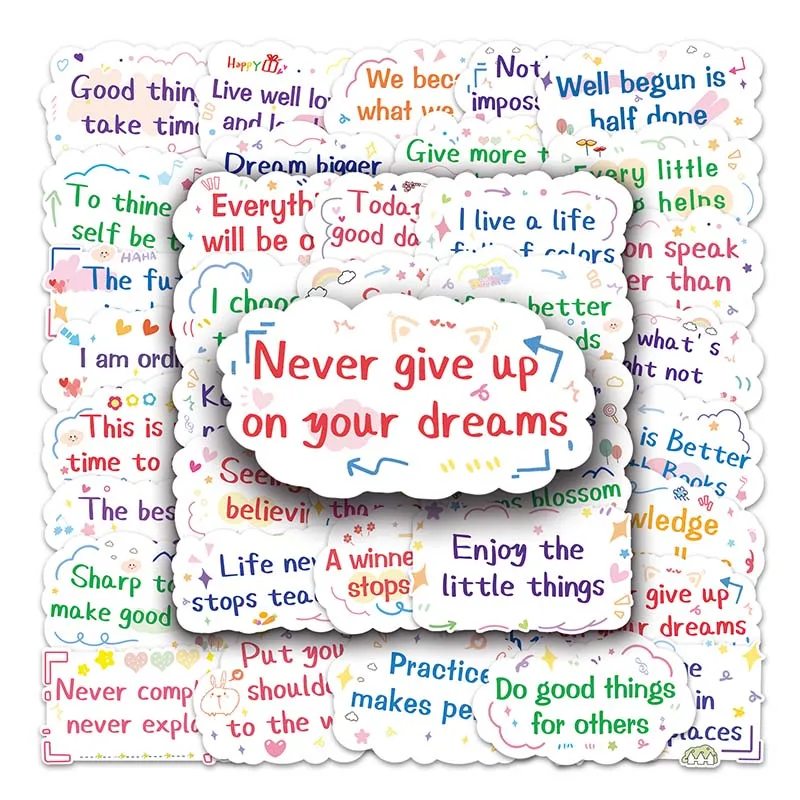 Good thin
take time
HAPPY
Live well lo
and l
We bec
what we
Not
imposs
Well begun is
half done
Dream bigger
Give more t
Every little
helps
To thine
self be t
Everyth
will be o
Today
good da
I live a life
full of colors
on speak
er than
HAHA
The fu
I choos
better
ds
what's
ht not
I am ordi
Never give up
on your dreams
This is
time to
is Better
Books
Seeing
believi
tha
s blossom
The bes
wledge
Sharp to
make good
Life nev
stops tea
A winne
stops
Enjoy the
little things
give up
r dreams
Never comp
never expla
Put you
should
to the w
Practice
makes pe
Do good things
for others
e
in
places